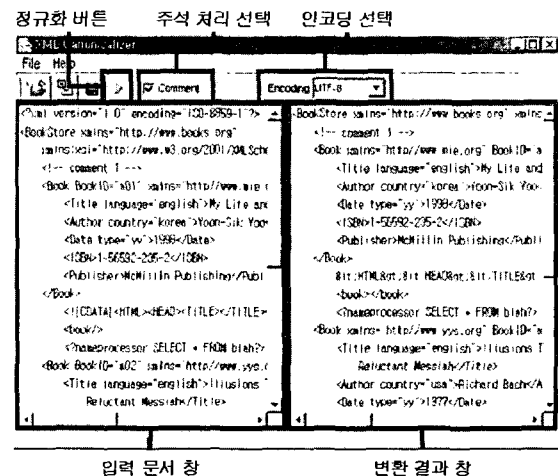 정규화 버튼 주석 처리 선택 인코딩 선택
XML Canonicalizer
File Help
Comment Encoding UTF-8
<?xml version="1.0" encoding="ISO-8859-1"?>
<BookStore xmlns="http://www.books.org"
xmlns:xsi="http://www.w3.org/2001/XMLSche
<!-- comment 1 -->
<Book BookID="a01" xmlns="http://www.mie.o
<Title language="english">My Life and
<Author country="korea">Yoon-Sik Yoo
<Date type="yy">1998</Date>
<ISBN>1-56592-235-2</ISBN>
<Publisher>McMillin Publishing</Publi
</Book>
<![CDATA[<HTML><HEAD><TITLE></TITLE>
<book/>
<?nameprocessor SELECT * FROM blah?>
<Book BookID="a02" xmlns="http://www.yys.o
<Title language="english">Illusions
Reluctant Messiah</Title>
<BookStore xmlns="http://www.books.org" xmlns
<!-- comment 1 -->
<Book xmlns="http://www.mie.org" BookID="a
<Title language="english">My Life and
<Author country="korea">Yoon-Sik Yoo
<Date type="yy">1998</Date>
<ISBN>1-56592-235-2</ISBN>
<Publisher>McMillin Publishing</Publi
</Book>
&lt;HTML&gt;&lt;HEAD&gt;&lt;TITLE&gt
<book></book>
<?nameprocessor SELECT * FROM blah?>
<Book xmlns="http://www.yys.org" BookID="a
<Title language="english">Illusions T
Reluctant Messiah</Title>
<Author country="usa">Richard Bach</A
<Date type="yy">1977</Date>
입력 문서 창 변환 결과 창